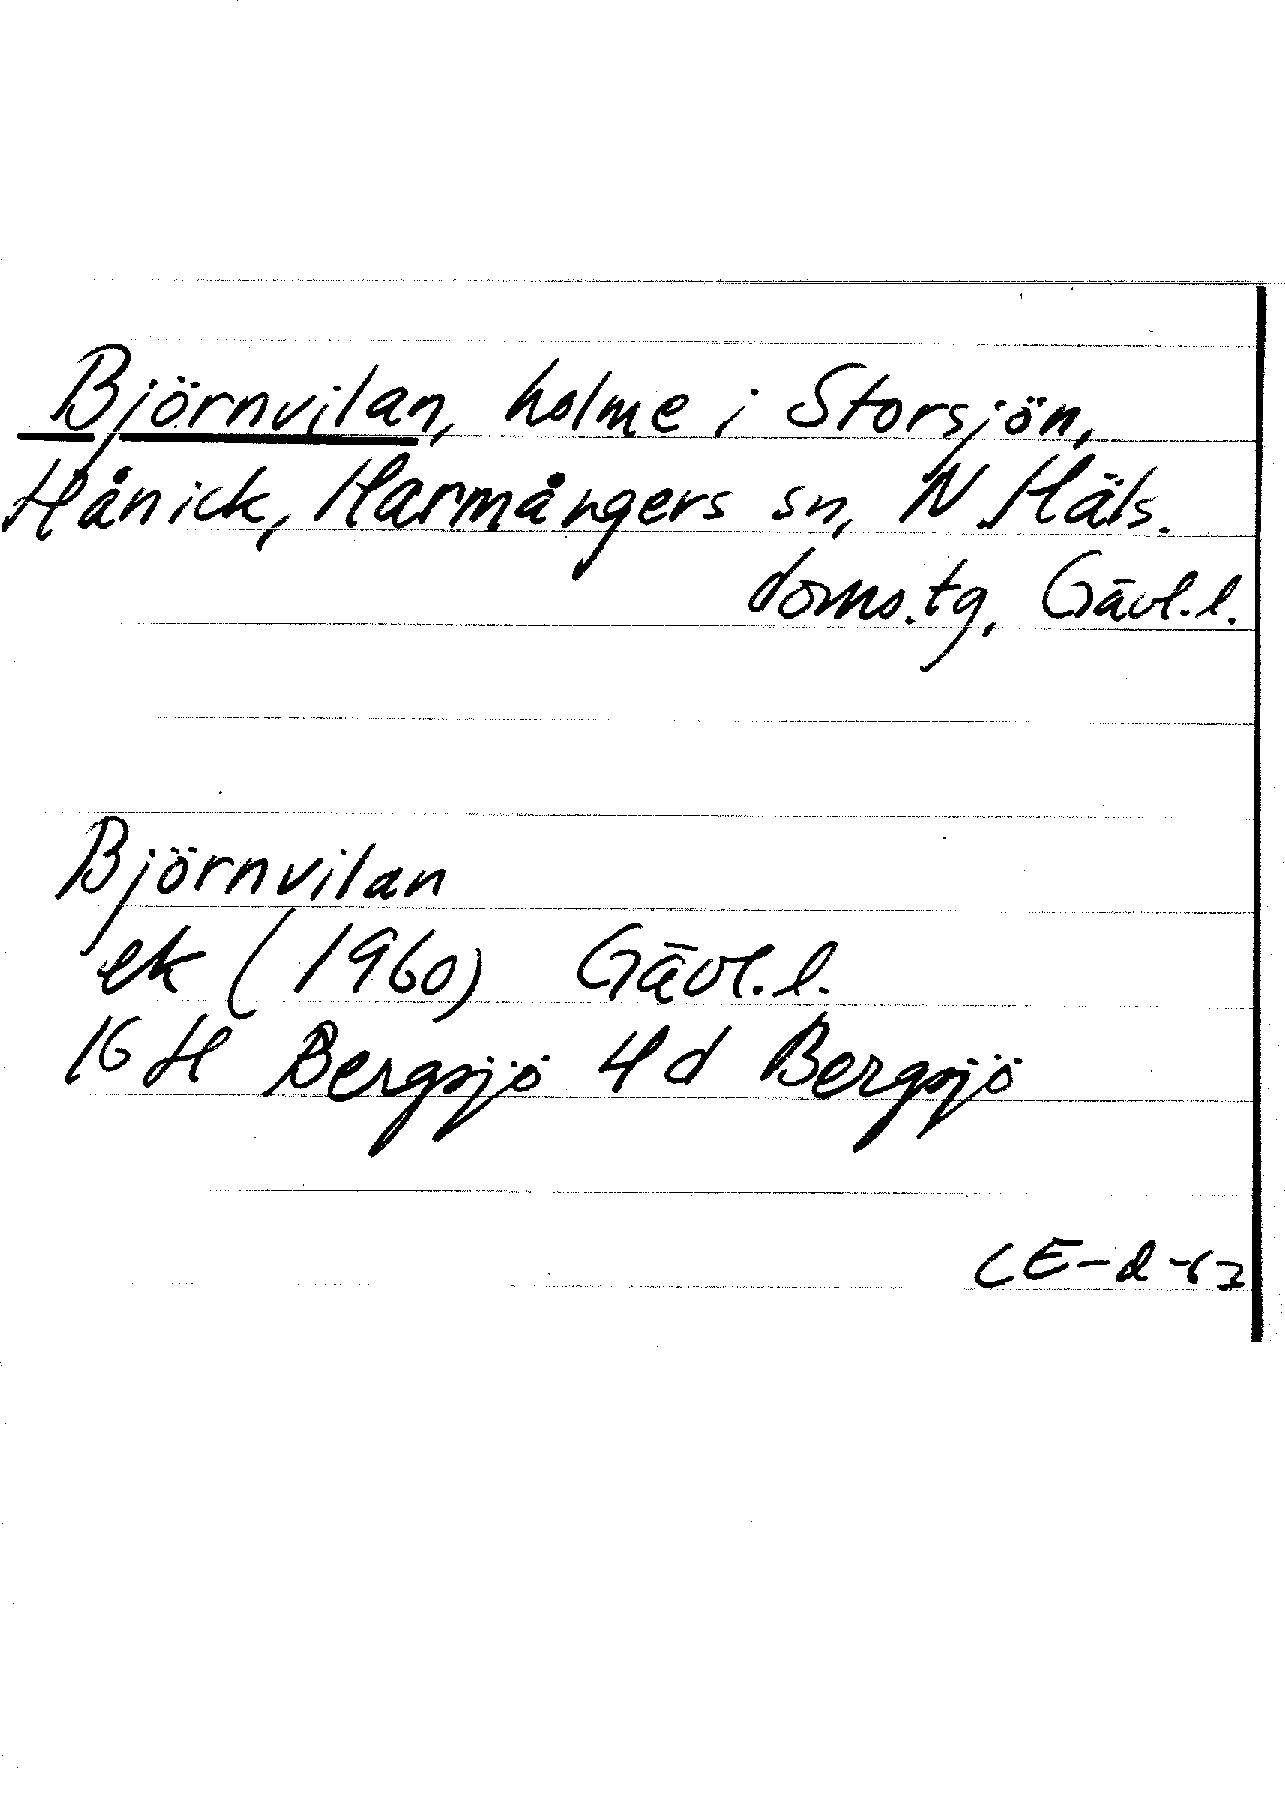 Björnvilan, holme i Storsjön,
Hånick, Harmångers sn, N Häls.
doms.tg, Gävl.l.
Björnvilan
ek (1960) Gävl.l.
16 H Bergsjö 4d Bergsjö
CE-d-63